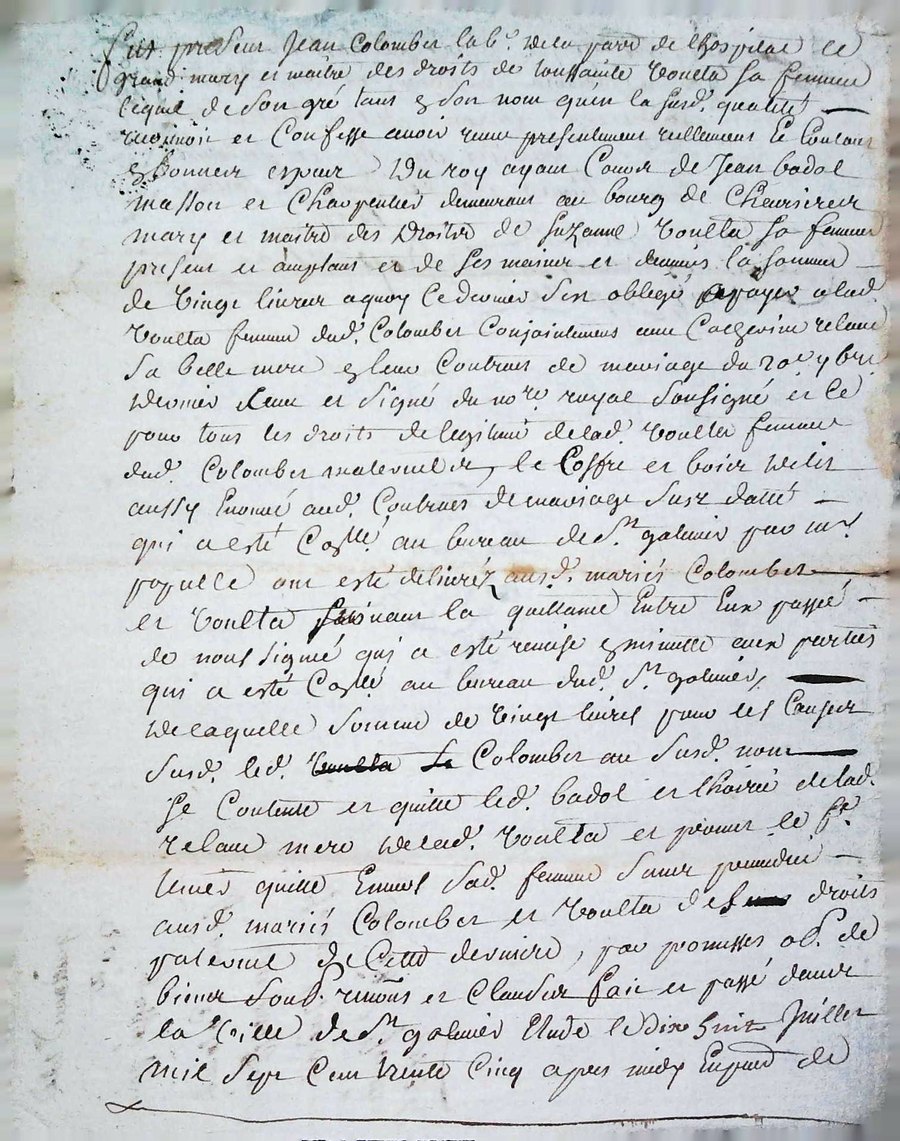 fut present Jean Colombet lab.r de la parr.e de lhospital le
grand mary et maitre des droits de toussainte Voulta sa femme
lequel de son gré tant & son nom qu'en la susd. qualité
reconnoit et Confesse avoir reçu presentement reellement &
du roy ayant Cours de Jean badol
masson et Charpentier demeurant au bourg de Chevrieres
mary et maitre des Droits de Suzanne Voulta sa femme
present et acceptant et de ses mains et deniers la somme
de Vingt livres a quoy ce dernier s'est obligé payer a lad.
Voulta femme dud. Colombet Conjointement avec
sa belle mere & leur Contract de mariage du 20.e 7bre
dernier Receu et signé du no.re royal soussigné et ce
pour tous les droits de legitime de lad. Voulta femme
dud. Colombet maternels, le Coffre et bois de lit
aussy Enoncé aud. Contract de mariage susd datté
qui a esté Con.llé au bureau de S.t galmier par m.r
ont esté delivréz ausd. mariés Colombet
et Voulta suivant la quittance Entre Eux passée
de nous signé qui a esté remise & minutte aux parties
qui a esté Con.llé au bureau dud. S.t galmier,
de laquelle somme de Vingt livres pour les Causes
susd. led. Voulta Colombet au susd. nom
se Contente et quitte led. badol et lhoirie de lad.
relave mere de lad. Voulta et promet le f.re
tenir quitte Envers sad. femme sans prejudice
ausd. mariés Colombet et Voulta des droits
paternel de Cette derniere, par promesses obl. de
biens soub. renons et Clauses fait et passé dans
la Ville de S.t galmier Etude le dix huit Juillet
mil sept Cent trente Cinq apres midy En pnce de